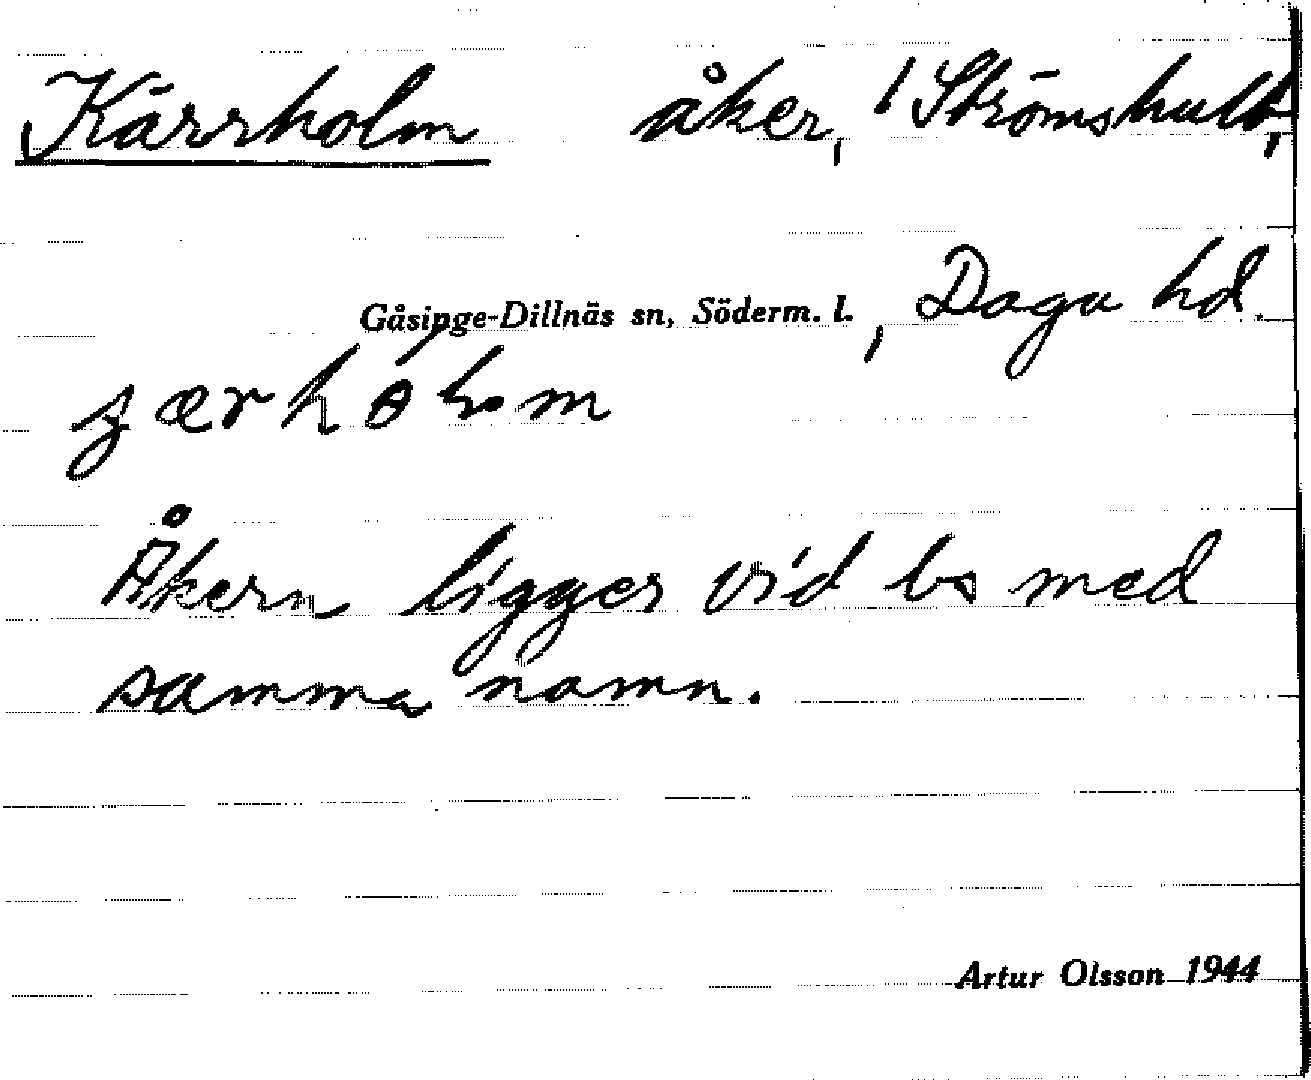 Kärrholm åker, i Strömshult,
Gåsinge-Dillnäs sn, Söderm. l., Daga hd.
Åkern ligger vid ls med
samma namn.
Artur Olsson 1944